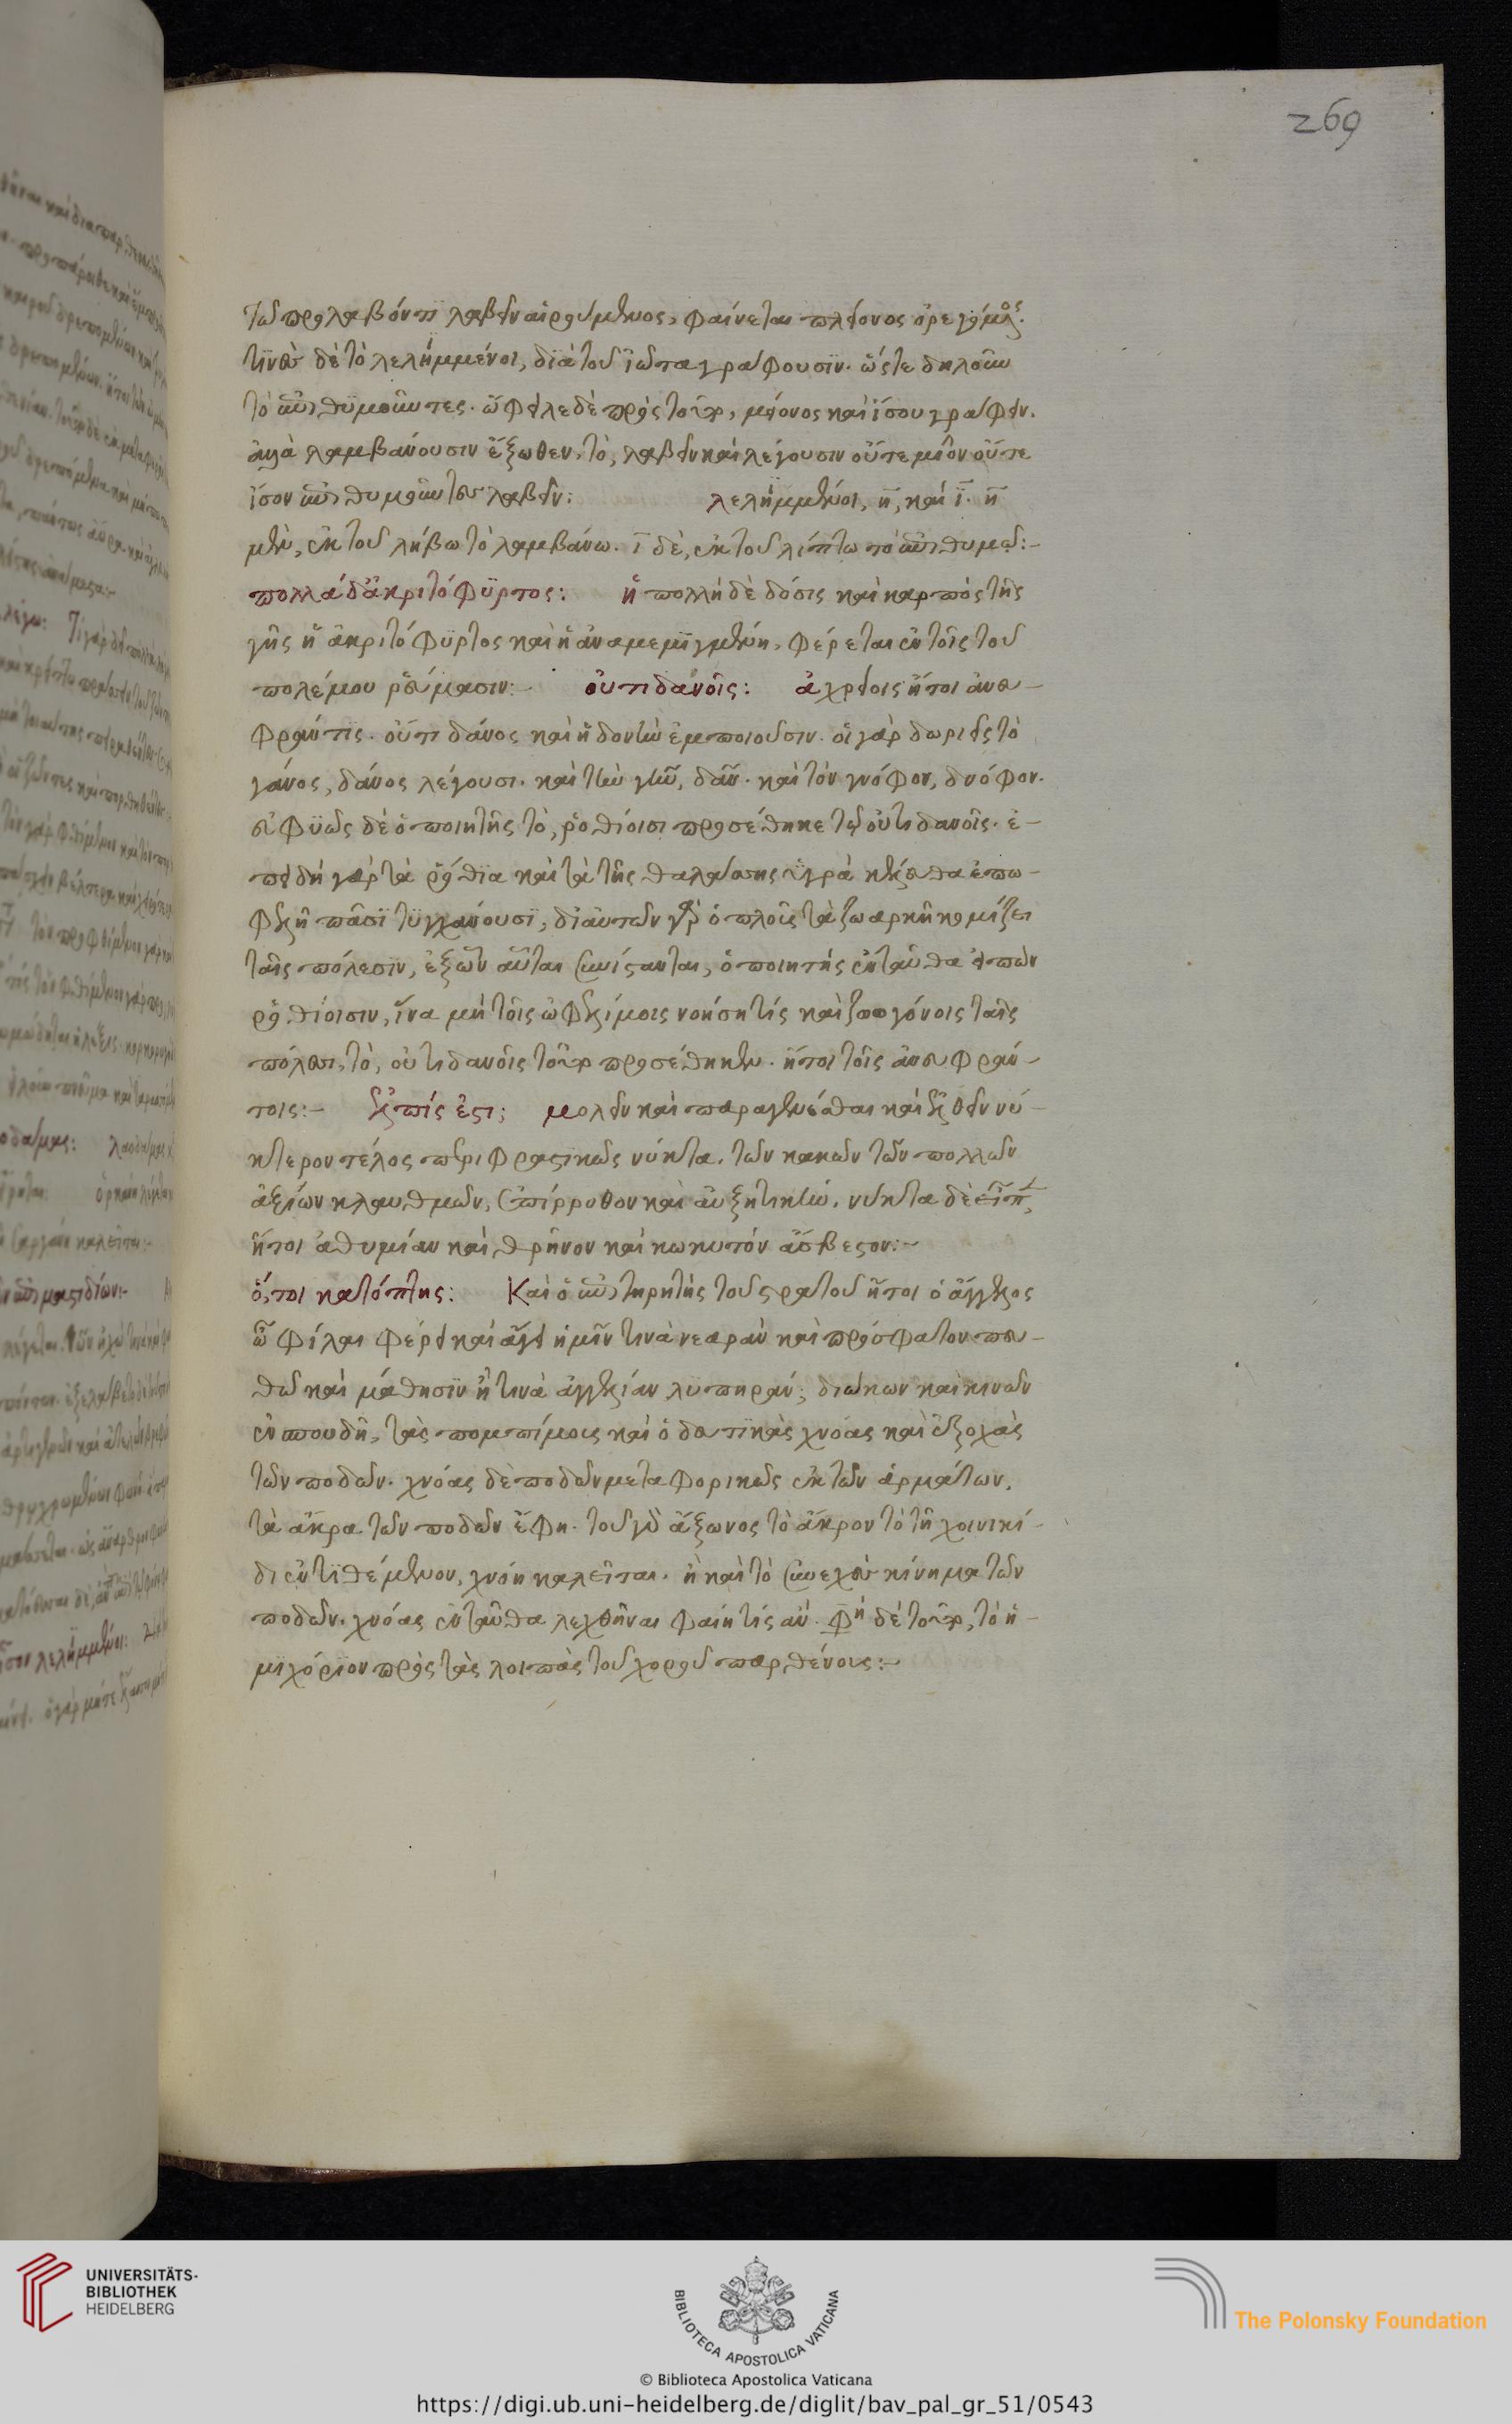 269
τῶ προλαβόντϊ λαβεῖν αἱρούμενος, φαίνεται πλείονος ὀρεγόμενος.
τϊνὲς δὲ τὸ λελήμμένοι, δϊὰ τοῦ ϊῶτα γράφουσϊν. ὥςτε δηλοῦν
τὸ ἐπϊθϋμοῦντες. ὤφειλε δὲ πρὸς τοῦτο, μείονος καὶ ἴσου γράφειν.
ἀλλὰ λαμβάνουσιν ἔξωθεν, τὸ, λαβεῖν καὶ λέγουσιν οὔτε μεῖον οὔτε
ἴσον ἐπιθυμοῦντες λαβεῖν:
λελήμμένοι, η, καὶ ϊ. η
μὲν, ἐκ τοῦ λήβω τὸ λαμβάνω. ϊ δὲ, ἐκ τοῦ λίπτω τὸ ἐπιθυμῶ:-
πολλὰ δ' ἀκριτόφϋρτος: ἡ πολλὴ δὲ δόσις καὶ καρπὸς τῆς
γῆς ἡ ἀκριτόφϋρτος καὶ ἡ ἀναμεμϊγμένη, φέρεται ἐν τοῖς τοῦ
πολέμου ῥεύμασιν:- οὐτιδανοῖς: ἀχρείοις ἤτοι ἀνευ-
φράντϊς. οὔτι δάνος καὶ ἡδονὴν ἐμποιοῦσιν. οἱ γὰρ δωριεῖς τὸ
γάνος, δάνος λέγουσι. καὶ τὴν γῆν, δᾶν. καὶ τὸν γνόφον, δνόφον.
εὐφϋῶς δὲ ὁ ποιητὴς τὸ, ῥοθίοισι προσέθηκε τῶ οὐτιδανοῖς. ἐ-
πειδὴ γὰρ τὰ ῥόθϊα καὶ τὰ τῆς θαλάσσης ὑγρὰ κέλευθα ἐπω-
φελῆ πᾶσϊ τϋγχάνουσϊ, δι' αὐτῶν γὰρ ὁ πλοῦς τὰ ζωαρκῆ κομίζει
ταῖς πόλεσϊν, ἐξ ὧν αὗται συνίςανται, ὁ ποιητής ἐνταῦθα εἰπὼν
ῥοθίοισιν, ἵνα μὴ τοῖς ὠφελίμοις νοήσῃ τίς καὶ ζωογόνοις ταῖς
πόλεσι, τὸ, οὐτιδανοῖς τοῦτο προσέθηκεν. ἤτοι τοῖς ἀνευφράν-
τοις:- ἐλπίς ἐςι: μολεῖν καὶ παραγενέσθαι καὶ ἐλθεῖν νύ-
κτερον τέλος περιφραςικῶς νύκτα. τῶν κακῶν τῶν πολλῶν
ἀξίων κλαυθμῶν, ἐπίρροθον καὶ αὐξητικὴν. νύκτα δὲ εἶπεν
ἤτοι ἀθυμίαν καὶ θρῆνον καὶ κωκυτόν ἄσβεςον:-
ὅ, τοι κατόπτης: Καὶ ὁ ἐπιτηρητὴς τοῦ ςρατοῦ ἤτοι ὁ ἄγγελος
ὦ φίλαι φέρει καὶ ἄγει ἡμῖν τινὰ νεαρὰν καὶ πρόσφατον πευ-
θὼ καὶ μάθησϊν ἤ τινὰ ἀγγελίαν λϋπηράν; διώκων καὶ κινῶν
ἐν σπουδῆ, τὰς πομπίμους καὶ ὁδευτϊκὰς χνόας καὶ ἐξοχὰς
τῶν ποδῶν. χνόας δὲ ποδῶν μεταφορικῶς ἐκ τῶν ἁρμάτων.
τὰ ἄκρα τῶν ποδῶν ἔφη. τοῦ γὰρ ἄξωνος τὸ ἄκρον τὸ τῆ χοινικί-
δι ἐντϊθέμενον, χνόη καλεῖται. ἢ καὶ τὸ συνεχὲς κίνημα τῶν
ποδῶν. χνόας ἐνταῦθα λεχθῆναι φαίη τίς ἄν. φη δὲ τοῦτο, τὸ ἡ-
μϊχόρϊον πρὸς τὰς λοιπὰς τοῦ χοροῦ παρθένους:-
UNIVERSITÄTS-
BIBLIOTHEK
HEIDELBERG
BIBLIOTECA APOSTOLICA VATICANA
The Polonsky Foundation
© Biblioteca Apostolica Vaticana
https://digi.ub.uni-heidelberg.de/diglit/bav_pal_gr_51/0543